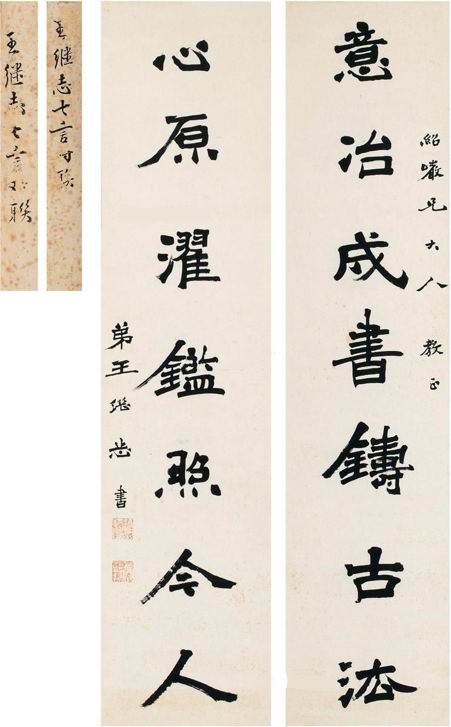 意冶成書鑄古法
紹巖兄大人 教正
心原濯鑑照今人
弟王继志書
王继志七言对联
王继志七言对联